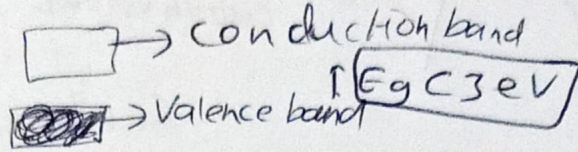 → conduction band
↑ Eg C 3 eV
→ Valence band